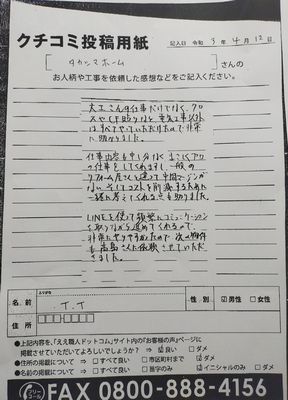 クチコミ投稿用紙
記入日 令和 3年 4月 12日
[タカシマホーム]さんの
お人柄や工事を依頼した感想などをご記入ください。
大工さんの仕事だけでなく、クロ
スやCF貼りなど、電気工事以外
はすべてやっていただけたので非常
に助かりました。
仕事内容も申し分なく、まさしくプロ
の仕事をしてくれますし、一般の
リフォーム屋さんと違って中間マージンが
ない。そしてコストを削減する為に
一緒に考えてくれる点も助かりました。
LINEを使って頻繁にコミュニケーション
を取りながら進めてくれるので、
非常にやりやすかったので次の物件
も高島さんに依頼させていただ
きました。
ふりがな
名 前 T.T
性 別 ☑男性 □女性
住 所
●上記内容を、「ええ職人ドットコム」サイト内の「お客様の声」ページに
掲載させていただいてよろしいでしょうか? ⇒ ☑良い □ダメ
●住所の掲載について ⇒ □すべて良い □市区町村まで ☑ダメ
●名前の掲載について ⇒ □すべて良い □苗字のみ ☑イニシャルのみ □ダメ
フリーコール
FAX 0800-888-4156